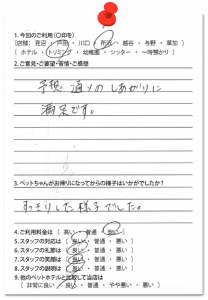 1.今回のご利用（○印を）
［店舗： 見沼 ・ 戸田 ・ 川口 ・ 所沢 ・ 越谷 ・ 与野 ・ 草加 ］
［ ホテル ・ トリミング ・ 幼稚園 ・ シッター ・ 一時預かり ］
2.ご意見・ご要望・苦情・ご感想
予想通りのしあがりに
満足です。
3.ペットちゃんがお帰りになってからの様子はいかがでしたか？
すっきりした様子でした。
4.ご利用料金は ［ 高い ・ 普通 ・ 安い ］
5.スタッフの対応は ［ 良い ・ 普通 ・ 悪い ］
6.スタッフの礼節は ［ 良い ・ 普通 ・ 悪い ］
7.スタッフの笑顔は ［ 良い ・ 普通 ・ 悪い ］
8.スタッフの説明は ［ 良い ・ 普通 ・ 悪い ］
9.他のペットホテルと比較して当店は
［ 非常に良い ・ 良い ・ 普通 ・ やや悪い ・ 悪い ］